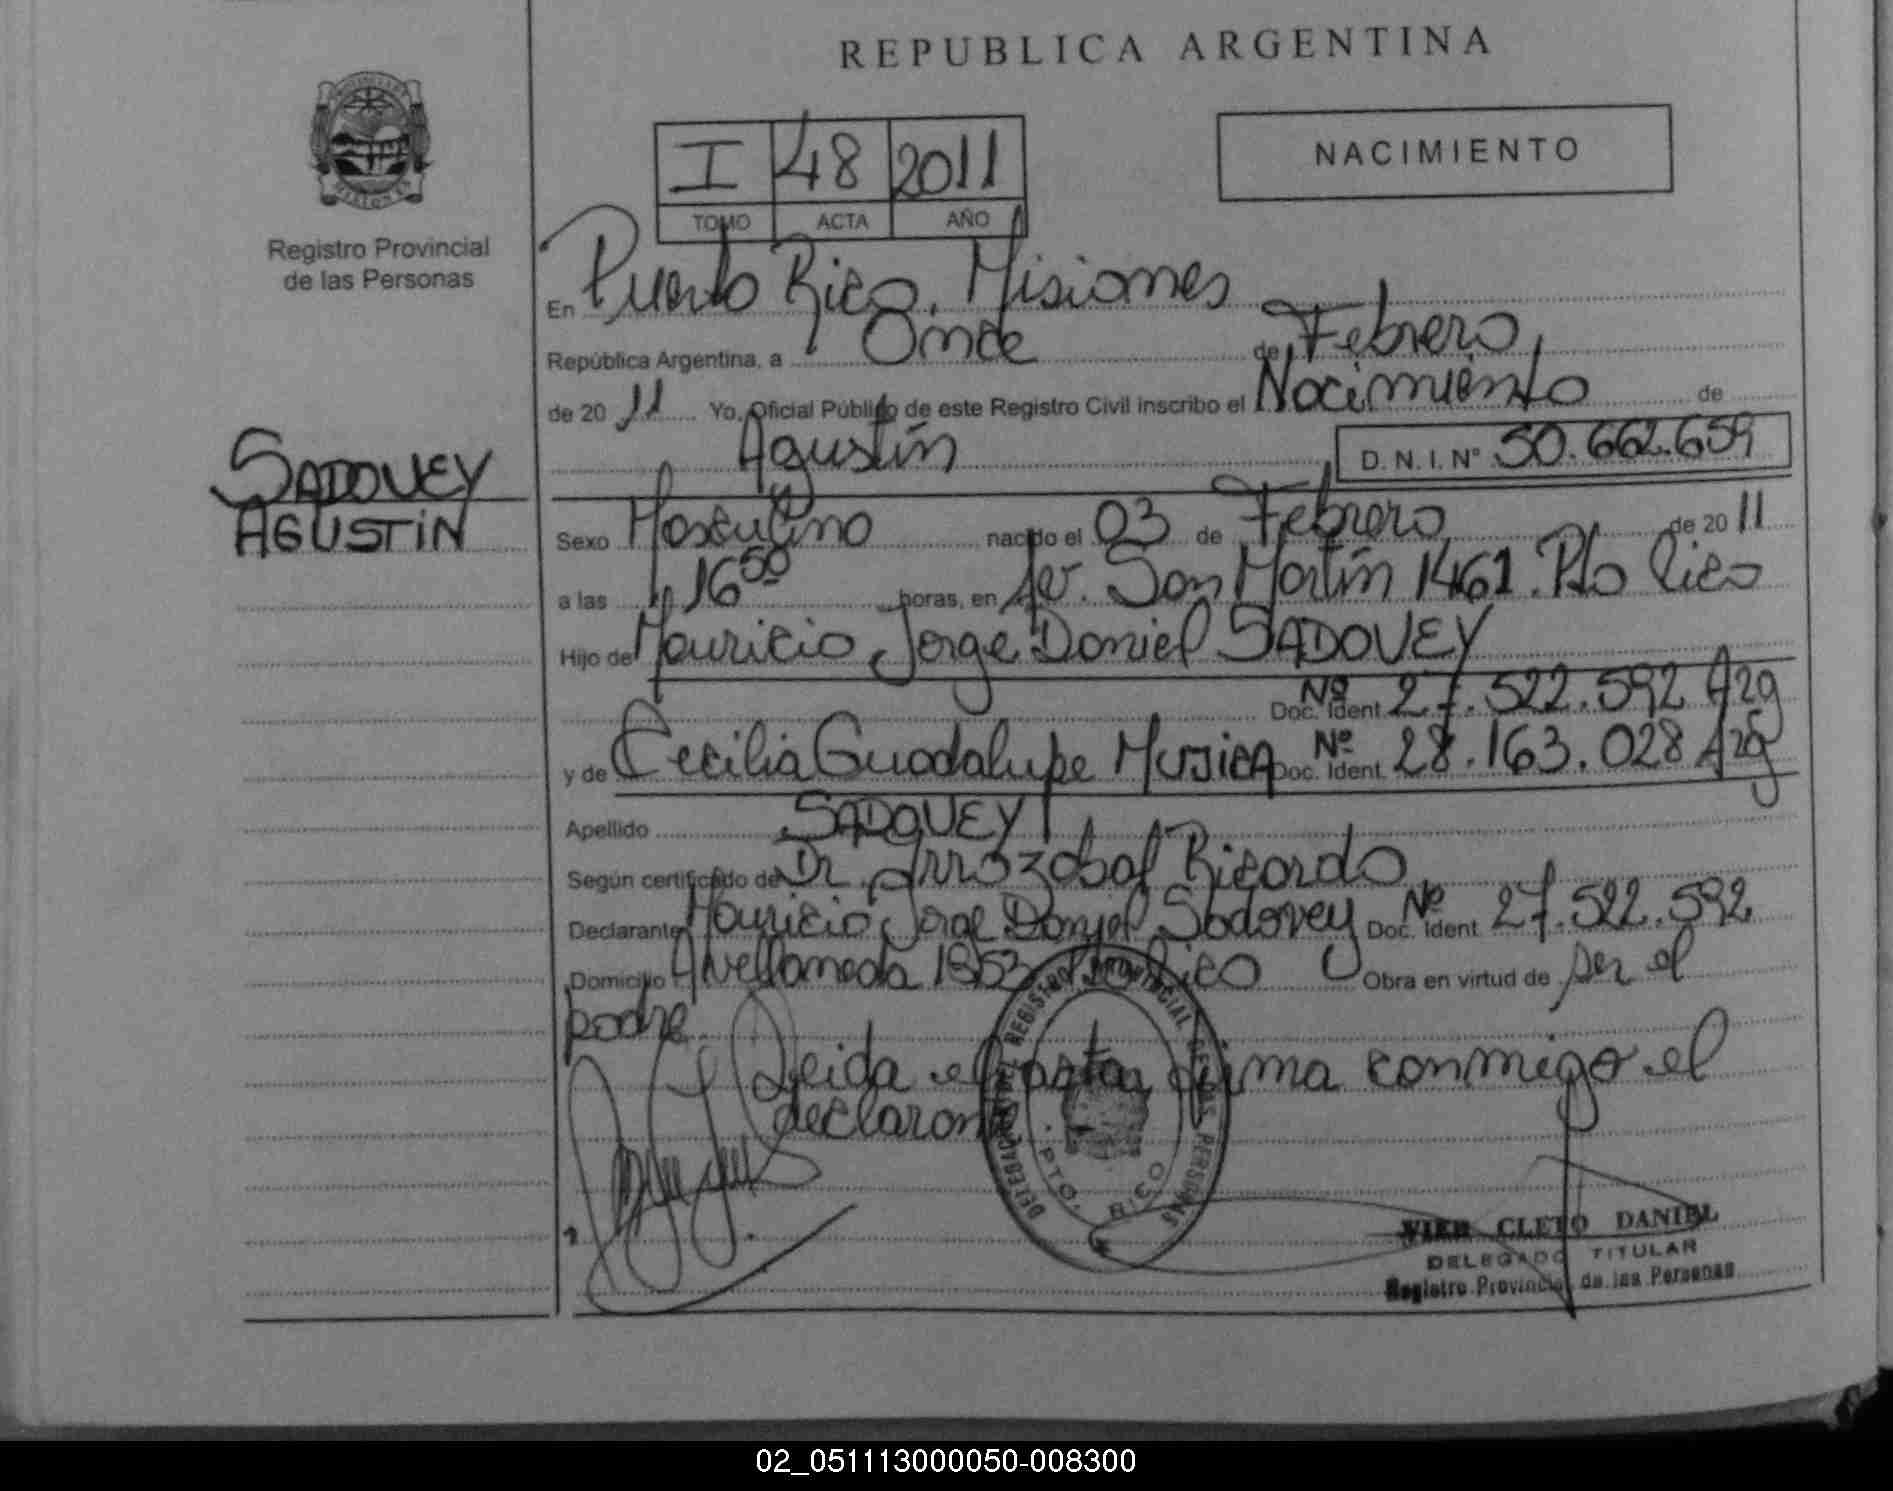 REPUBLICA ARGENTINA
NACIMIENTO
I 48 2011
TOMO ACTA AÑO
Registro Provincial
de las Personas
En Puerto Rico, Misiones
República Argentina, a Once de Febrero
de 20 11 Yo, Oficial Público de este Registro Civil inscribo el Nacimiento de
Agustín D.N.I. Nº 50.662.659
SADOVEY
AGUSTIN
Sexo Masculino nacido el 03 de Febrero de 20 11
a las 16 50 horas, en Av. San Martín 1461. Pto Rico
Hijo de Mauricio Jorge Daniel SADOVEY
Doc. Ident. Nº 27.522.592 Arg
y de Cecilia Guadalupe MUJICA Doc. Ident. Nº 28.163.028 Arg
Apellido SADOVEY
Según certificado de Dr. Arrozabal Ricardo
Declarante Mauricio Jorge Daniel Sadovey Doc. Ident. Nº 27.522.592
Domicilio Avellaneda 1853 Pto Rico Obra en virtud de ser el
padre.
Leida el acta firma conmigo el
declarante
REGISTRO PROVINCIAL DE LAS PERSONAS
PTO. RICO
VIER CLETO DANIEL
DELEGADO TITULAR
Registro Provincial de las Personas
02_051113000050-008300